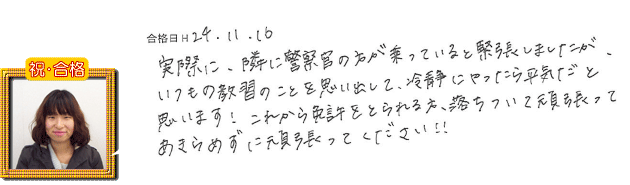 合格日H24.11.16
実際に、隣に警察官の方が乗っていると緊張しましたが、
いつもの教習のことを思い出して、冷静にやったら平気だと
思います！これから免許をとられる方、落ちついて頑張って
あきらめずに頑張ってください!!
祝・合格